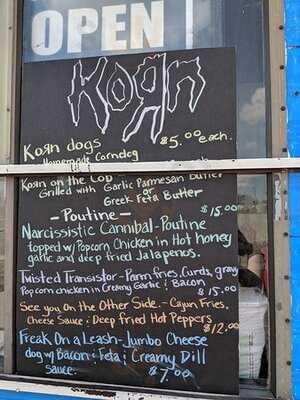 OPEN
KoЯn
KoЯn dogs $5.00 each.
Homemade Corndog
KoЯn on the Cob
Grilled with Garlic Parmesan Butter
or
Greek Feta Butter
- Poutine -
Narcissistic Cannibal-Poutine $15.00
topped w/Popcorn Chicken in Hot honey
garlic and deep fried Jalapenos.
Twisted Transistor - Parm fries, Curds, gravy
Popcorn chicken in Creamy Garlic & Bacon $15.00
See you On the Other Side. - Cajun Fries,
Cheese Sauce & Deep fried Hot Peppers $12.00
Freak On a Leash - Jumbo Cheese
dog w/ Bacon & Feta & Creamy Dill
sauce. $7.00